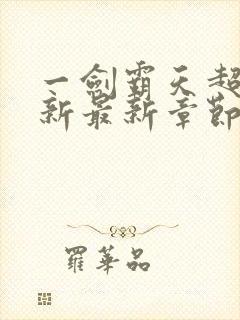 一劍霸天超
新最新章節
羅華品